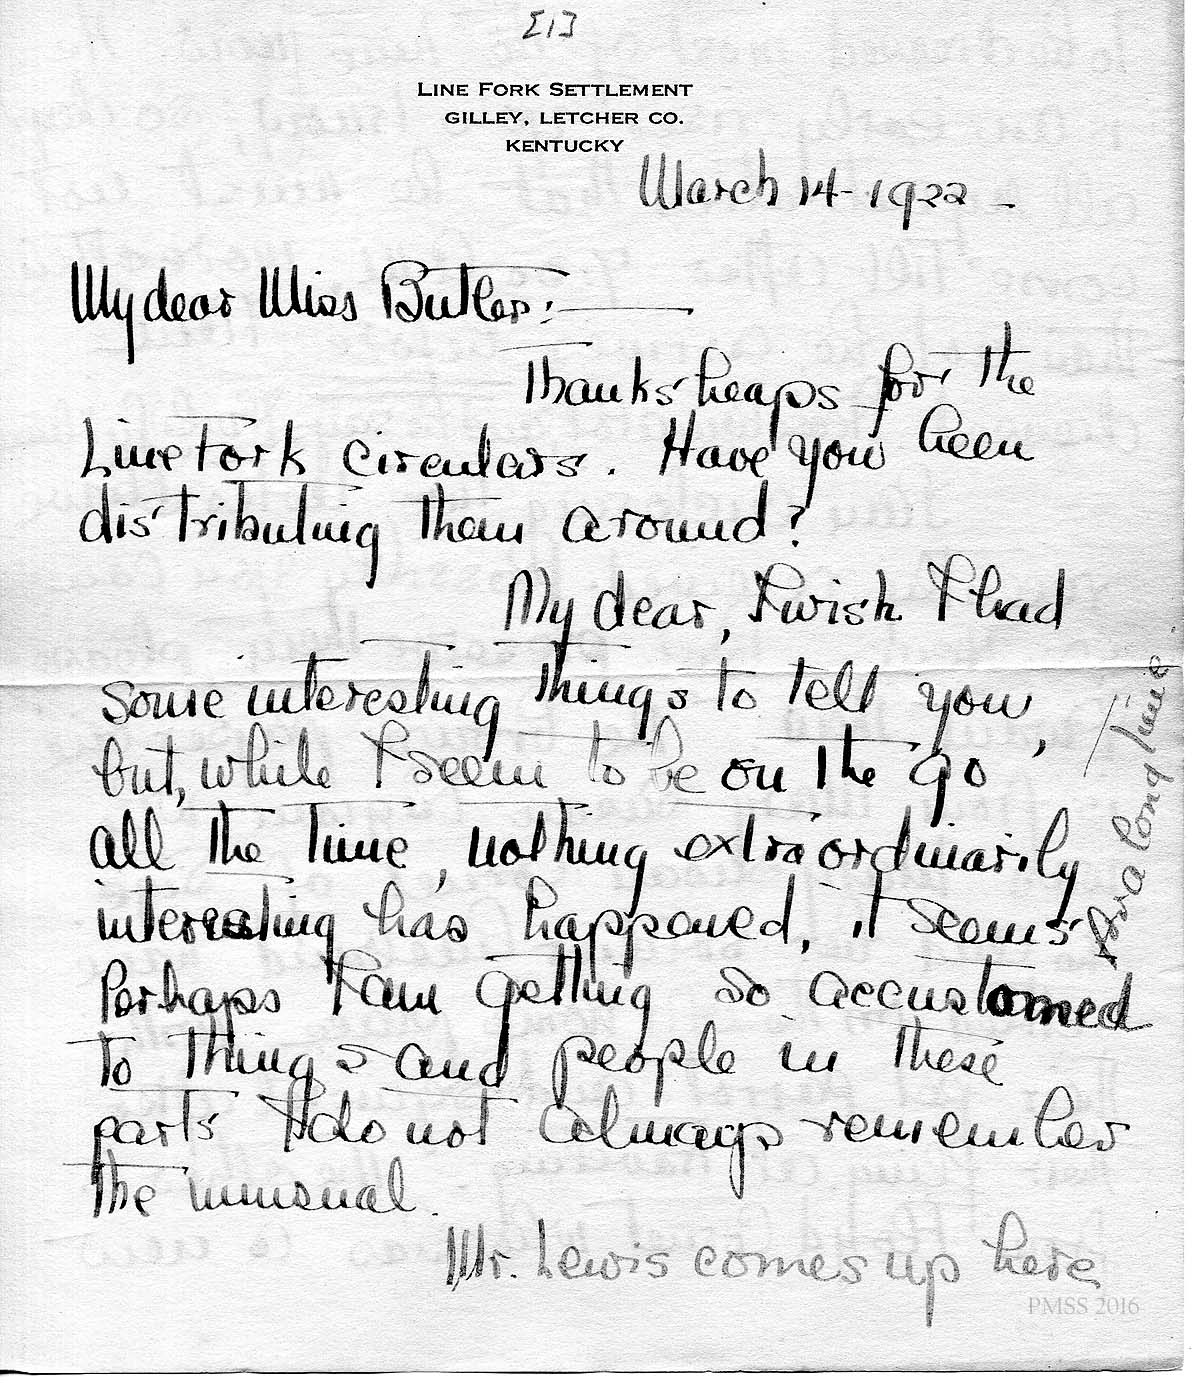 [1]
LINE FORK SETTLEMENT
GILLEY, LETCHER CO.
KENTUCKY
March 14-1922-
My dear Miss Butler:—
Thanks heaps for the
Line Fork circulars. Have you been
distributing them around?
My dear, I wish I had
some interesting things to tell you,
but, while I seem to be on the go
all the time, nothing extraordinarily
interesting has happened, it seems
for a long time
Perhaps I am getting so accustomed
to things and people in these
parts I do not always remember
the unusual.
Mr. Lewis comes up here
PMSS 2016